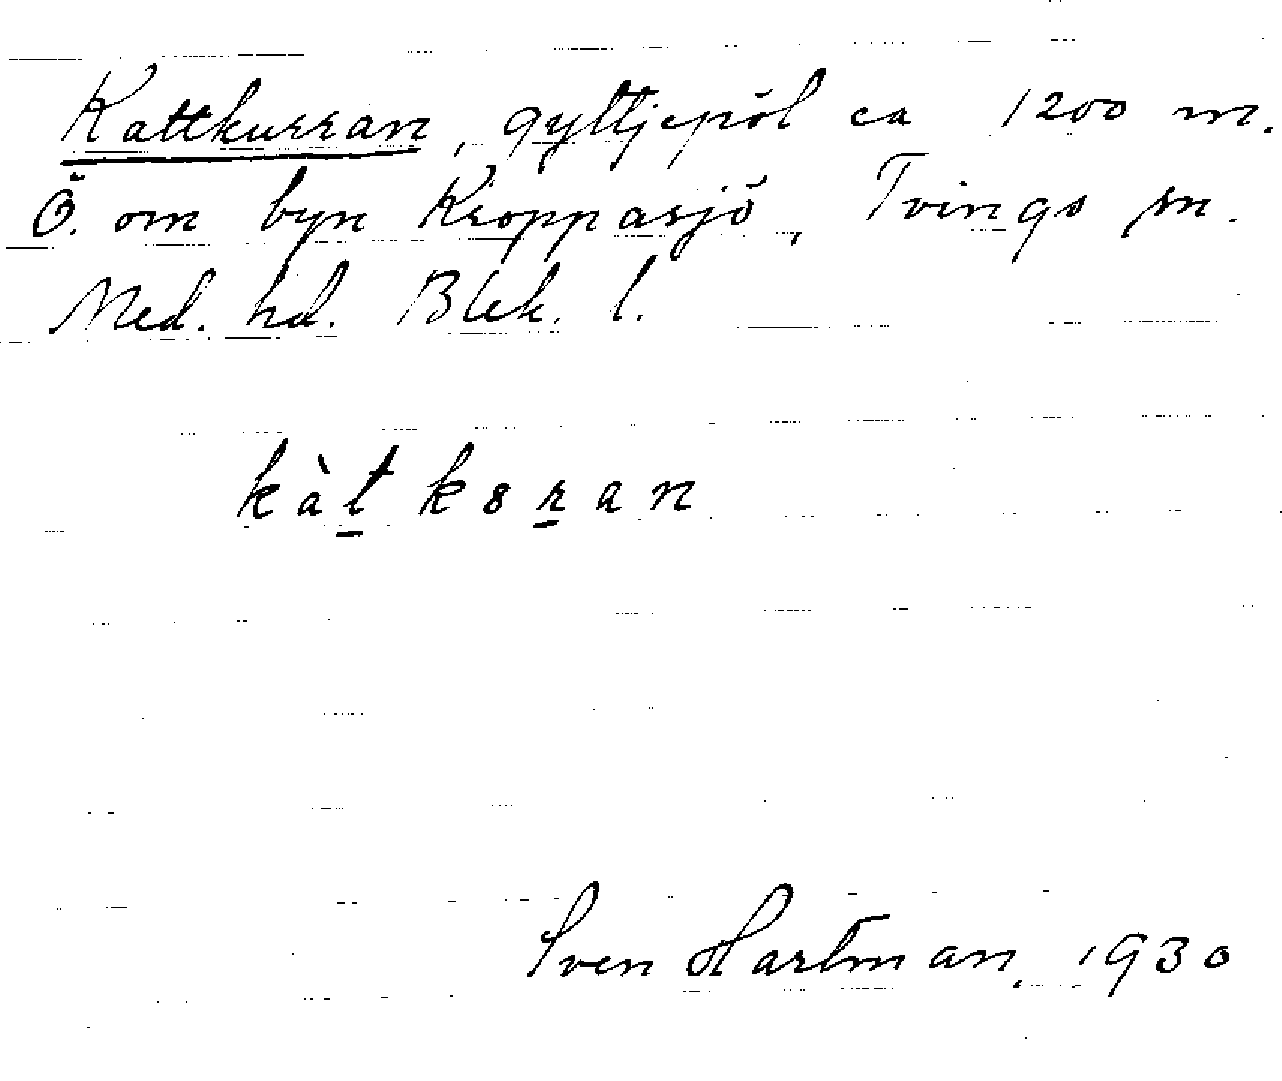 Kattkurran, gyttjepöl ca 1200 m.
Ö. om byn Kroppasjö, Tvings sn.
Med. hd. Blek. l.
kàt̠ kɞr̠an
Sven Hartman, 1930